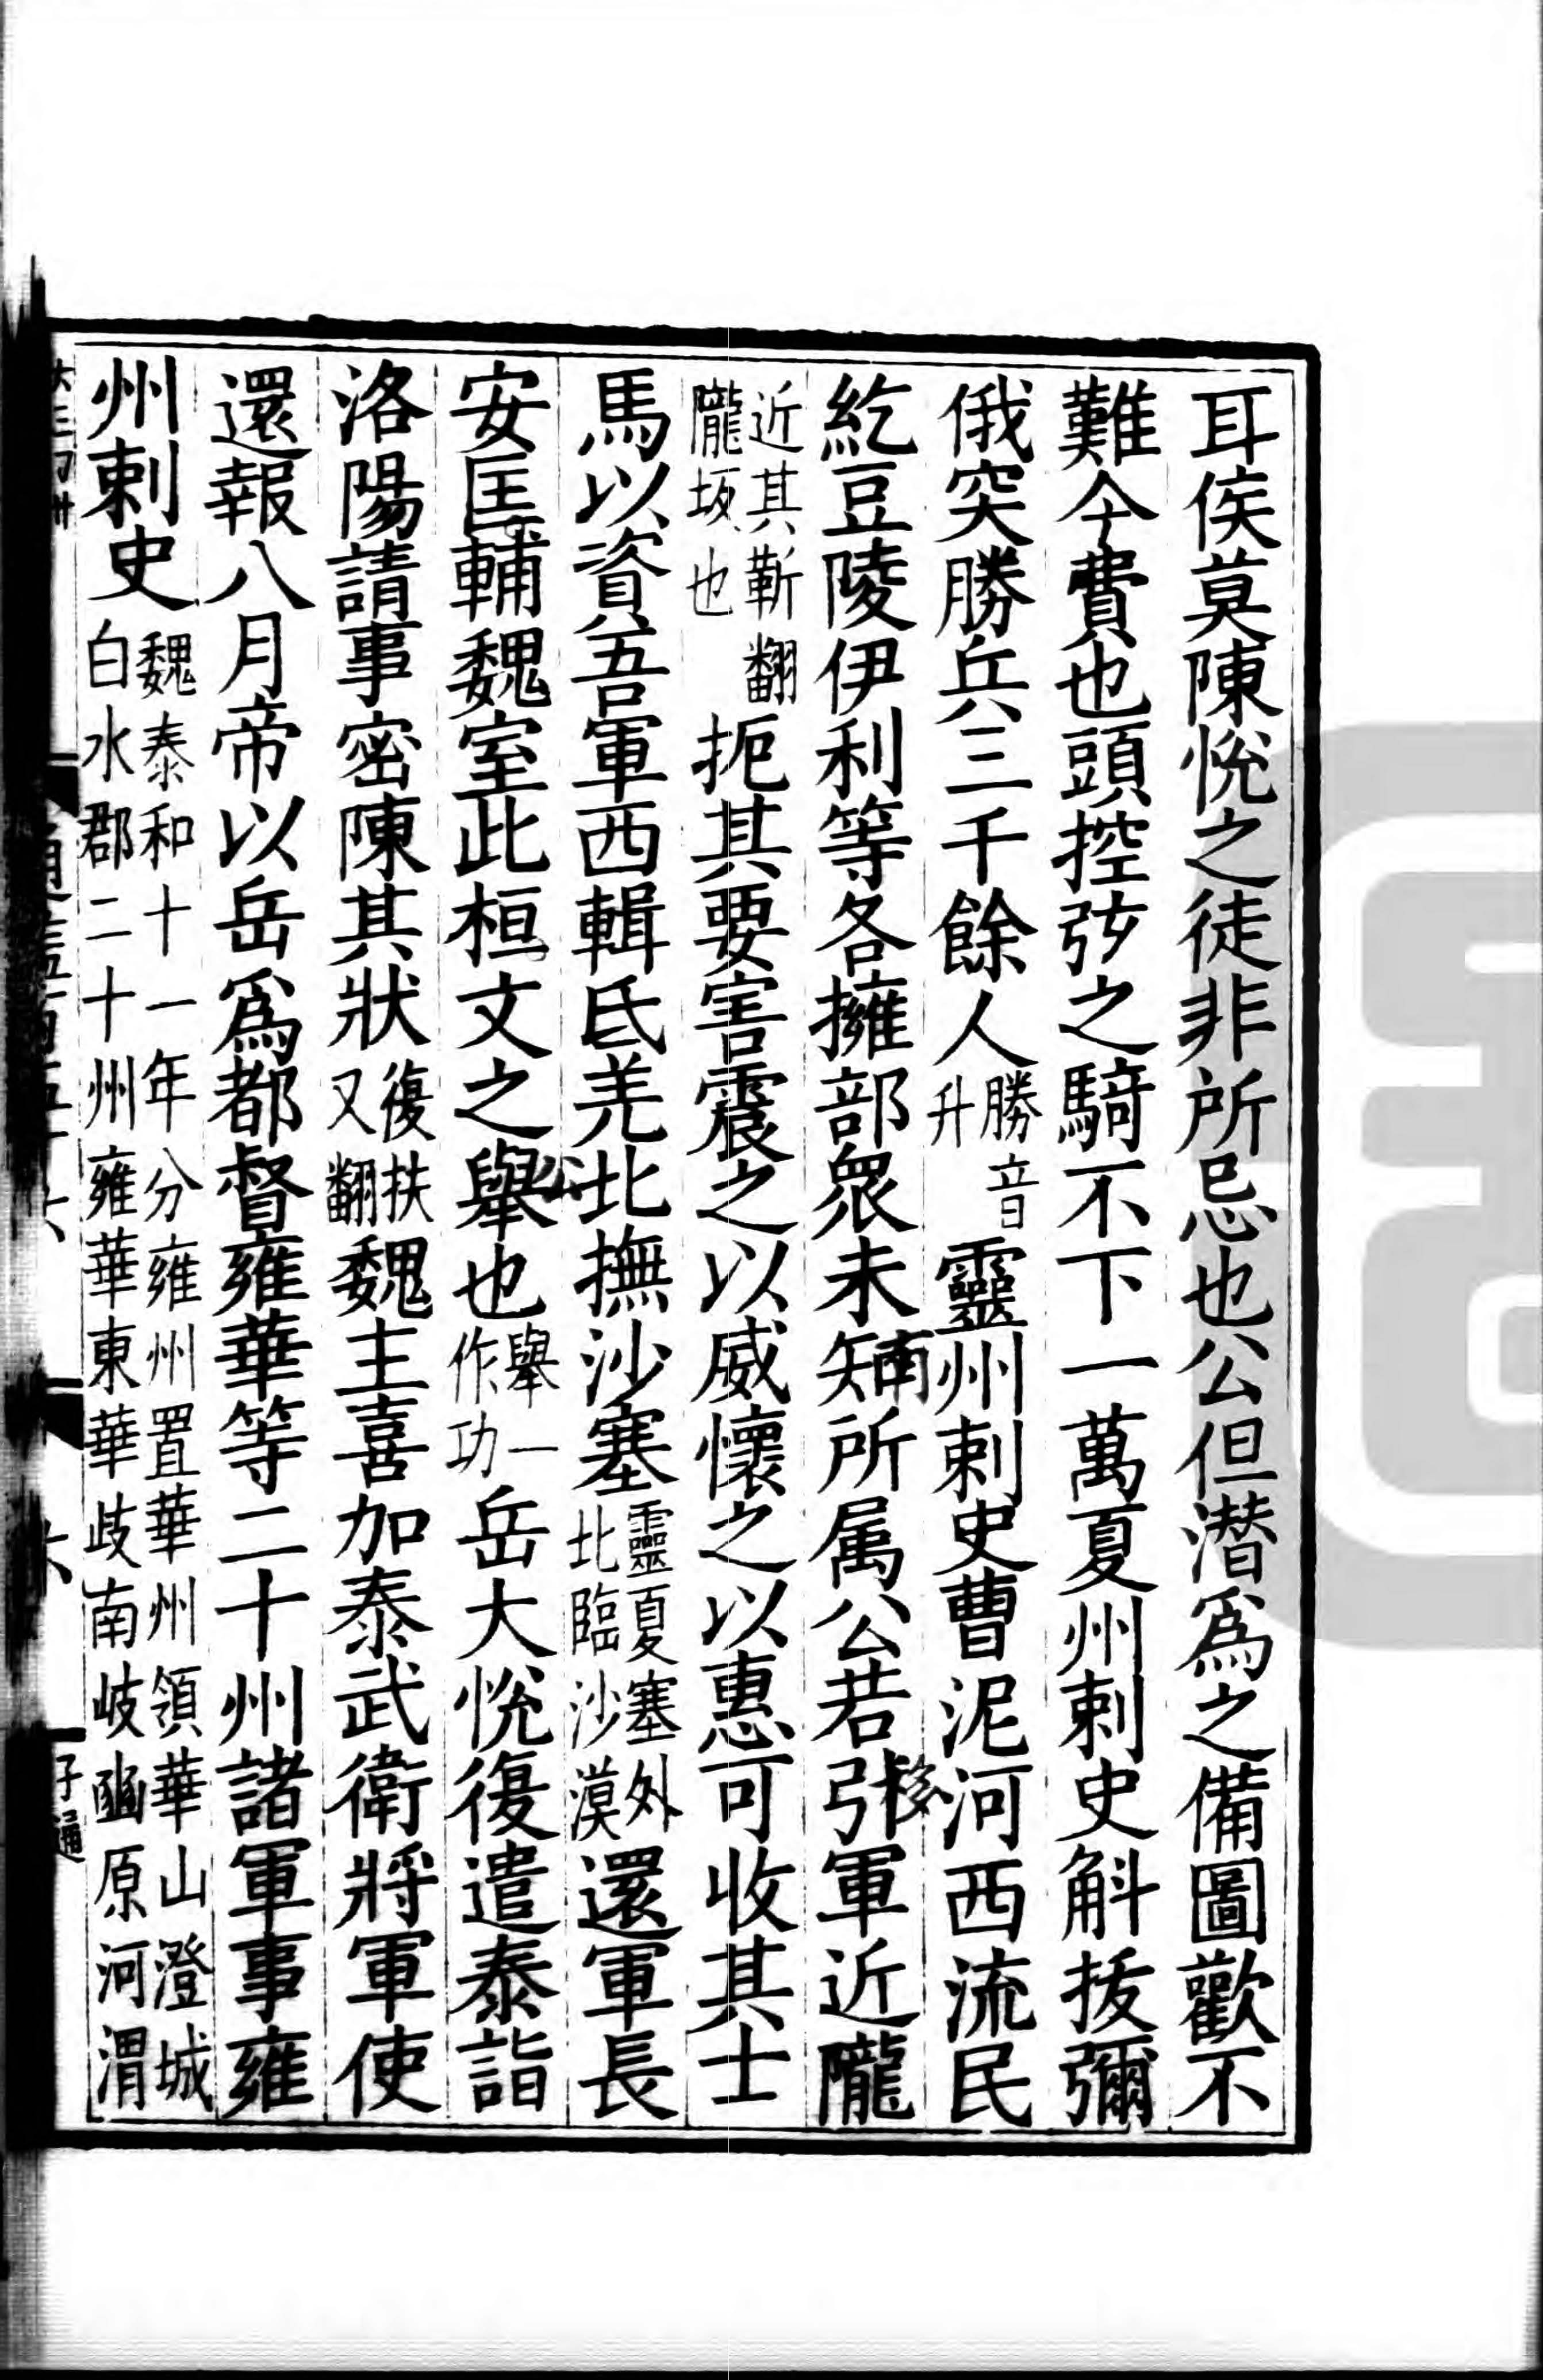 耳侯莫陳悅之徒非所忌也公但潛爲之備圖歡不
難今費也頭控弦之騎不下一萬夏州刺史斛拔彌
俄突勝兵三千餘人勝音升靈州刺史曹泥河西流民
紇豆陵伊利等各擁部衆未知所属公若引軍近隴
近其靳翻隴坂也扼其要害震之以威懷之以惠可收其士
馬以資吾軍西輯氐羌北撫沙塞靈夏塞外北臨沙漠還軍長
安匡輔魏室此桓文之舉也舉一作功岳大悅復遣泰詣
洛陽請事密陳其狀復扶又翻魏主喜加泰武衛將軍使
還報八月帝以岳爲都督雍華等二十州諸軍事雍
州刺史魏泰和十一年分雍州置華州領華山澄城白水郡二十州雍華東華歧南岐豳原河渭